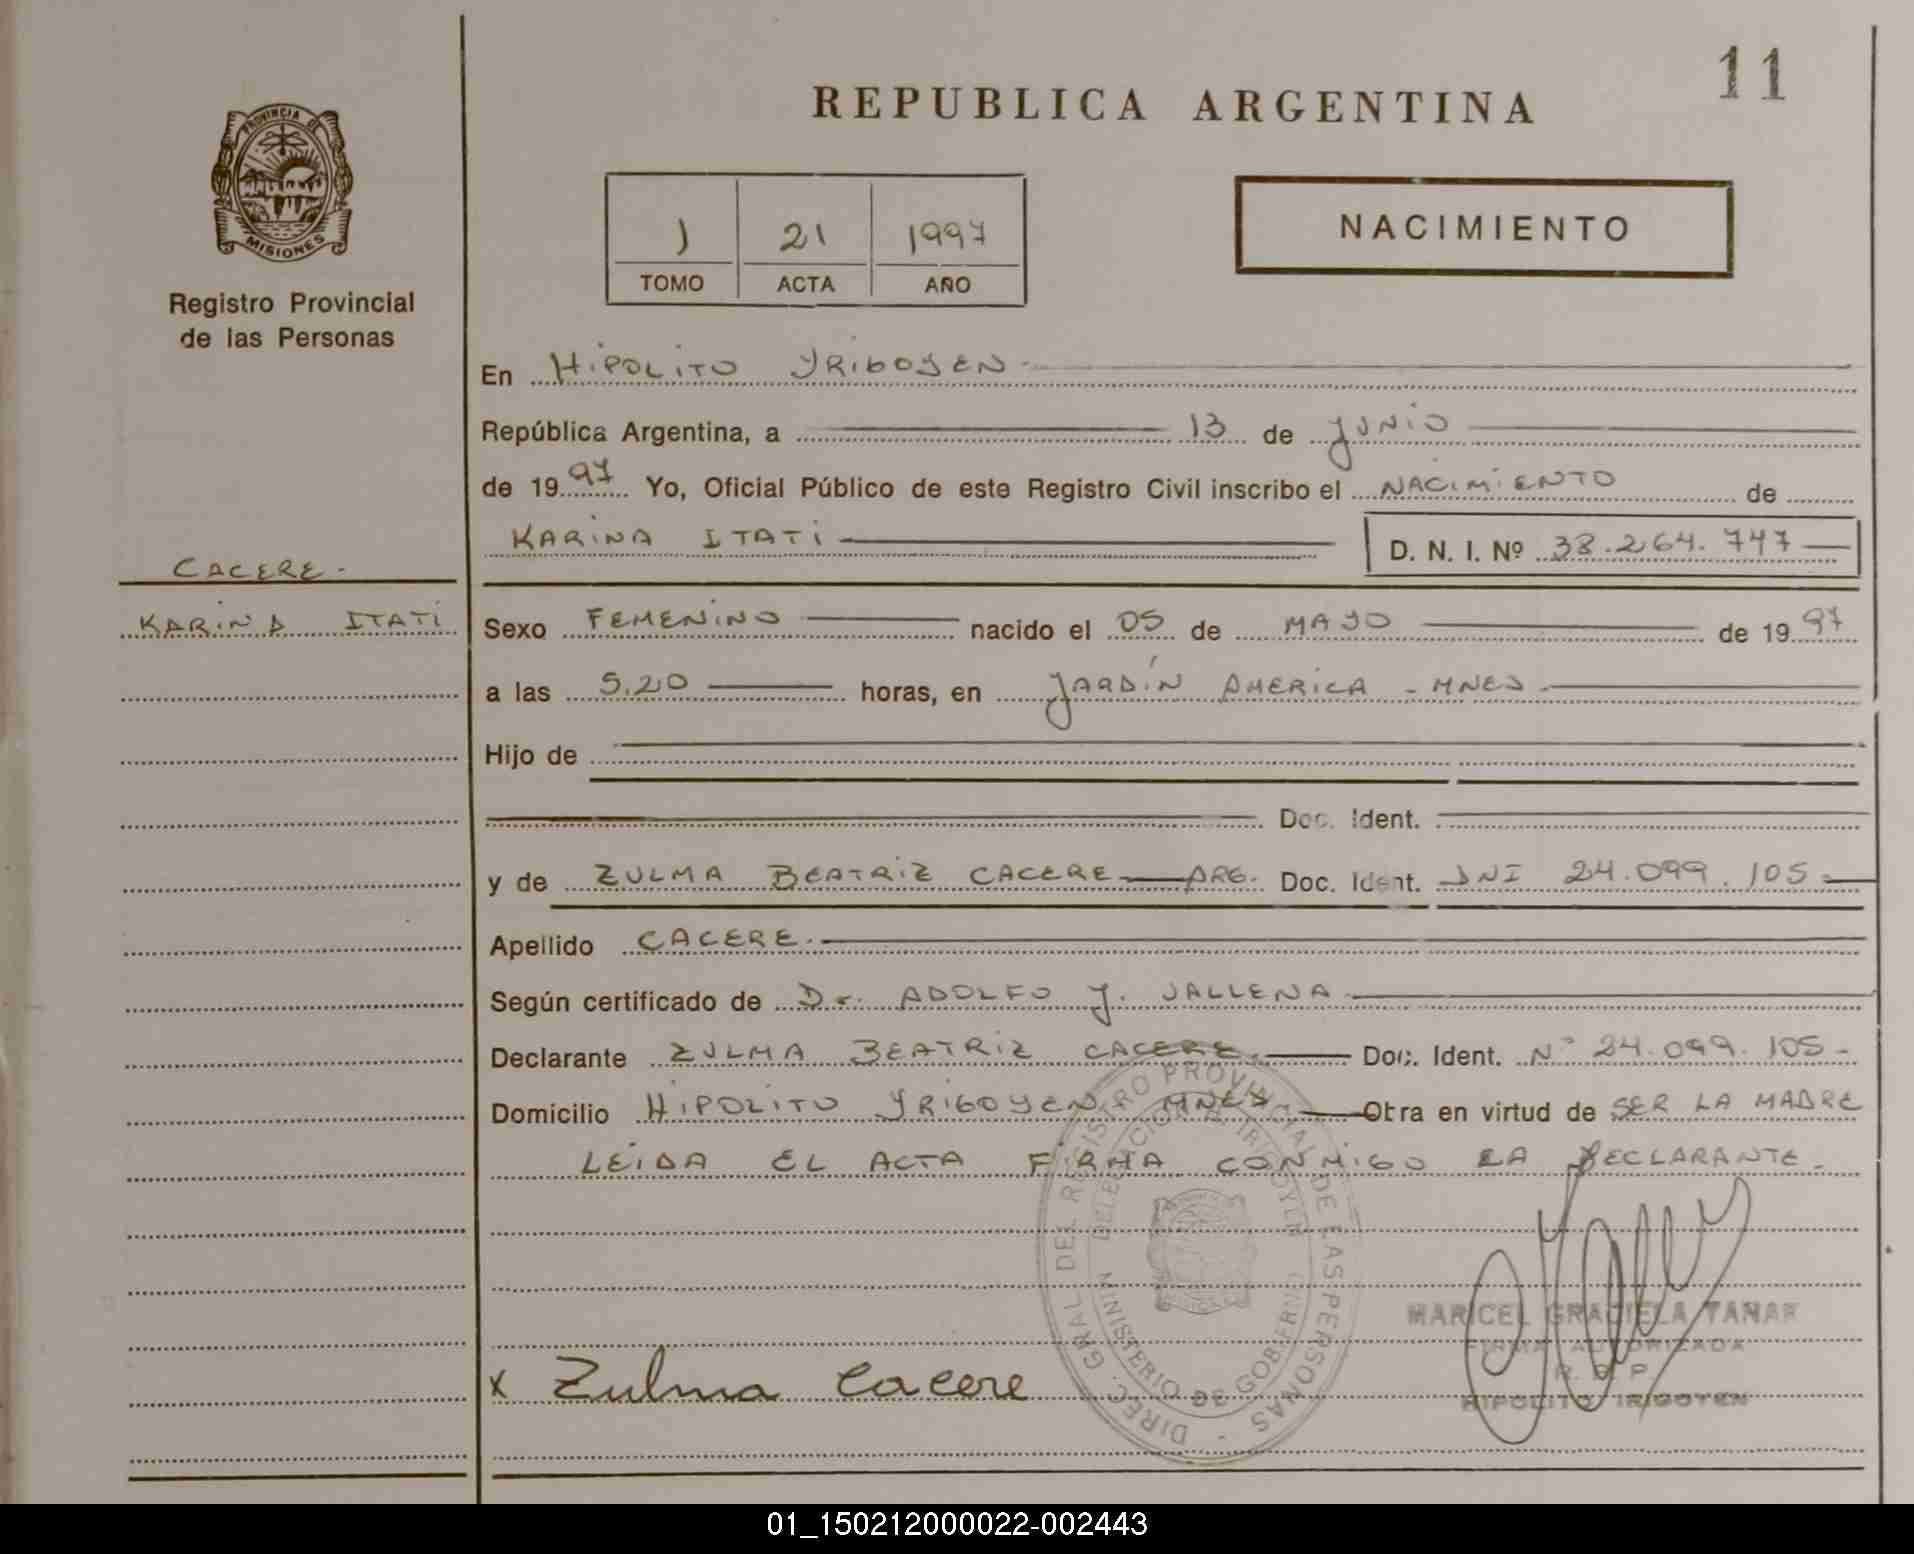 11
REPUBLICA ARGENTINA
PROVINCIA DE
MISIONES
Registro Provincial
de las Personas
1 21 1997
TOMO ACTA AÑO
NACIMIENTO
En HIPOLITO YRIGOYEN
República Argentina, a 13 de JUNIO
de 1997 Yo, Oficial Público de este Registro Civil inscribo el NACIMIENTO de
KARINA ITATI D. N. I. Nº 38.264.747
CACERE.
KARINA ITATI
Sexo FEMENINO nacido el 05 de MAYO de 1997
a las 5.20 horas, en JARDÍN AMERICA - MNES
Hijo de
Doc. Ident.
y de ZULMA BEATRIZ CACERE ARG. Doc. Ident. DNI 24.099.105
Apellido CACERE.
Según certificado de Dr. ADOLFO J. VALLENA
Declarante ZULMA BEATRIZ CACERE Doc. Ident. Nº 24.099.105
Domicilio HIPOLITO YRIGOYEN MNES Obra en virtud de SER LA MADRE
LEIDA EL ACTA FIRMA CONMIGO LA DECLARANTE
DIREC. GRAL. DEL REGISTRO PROVINCIAL DE LAS PERSONAS
MINISTERIO DE GOBIERNO
MARICEL GRACIELA
FIRMA AUTORIZADA
R. P. P.
HIPOLITO IRIGOYEN
x Zulma Cacere
01_150212000022-002443